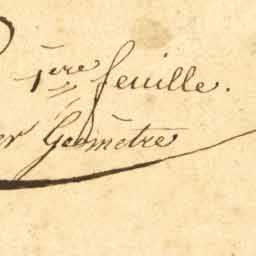 1ère feuille.
er Géomètre